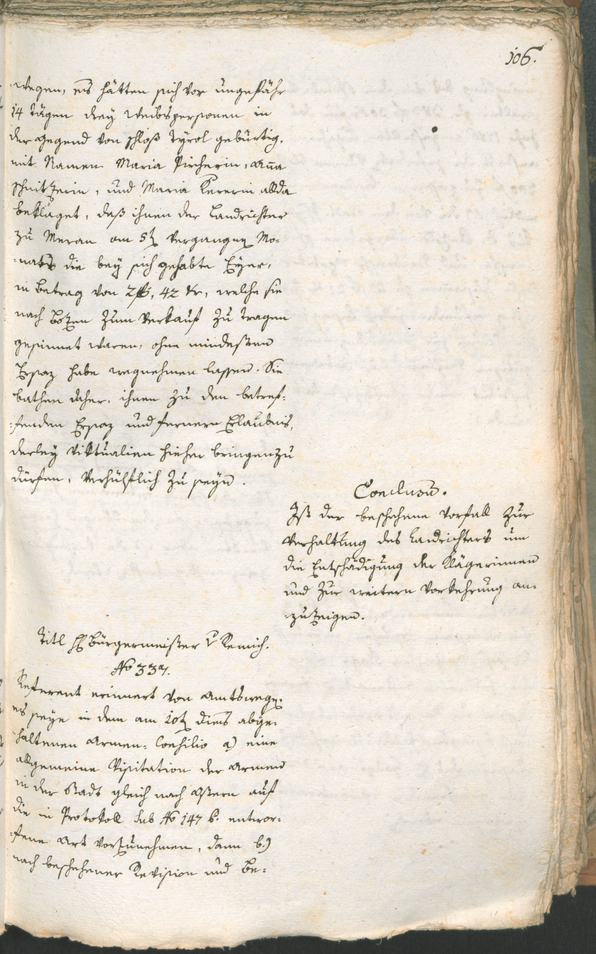 106.
wegen, es hätten sich vor ungefähr
14 tägen drey Weibspersonen in
der gegend von schloß Tyrol gebürtig,
mit Namen Maria Pircherin, Aña
schnitzerin, und Maria Kererin allda
beklaget, daß ihnen der Landrichter
zu Meran am 5t vergangen Mo-
nats die bey sich gehabte Eyer,
in betrag von 2 f, 42 kr, welche sie
nach Bozen zum verkauf zu tragen
gesinnet waren, ohne mindesten
Ersaz habe wegnehmen lassen. Sie
bathen daher, ihnen zu den betref-
fenden Ersaz und fernern Erlaubnis,
derley Viktualien hieher bringen zu
dürfen, verhülflich zu seyn.
Conclusū.
Ist der beschehene Vorfall zur
Verhaltung des Landrichters um
die Entschädigung der Klägerinnen
und zur weitern Vorkehrung an-
zuzeigen.
Titl H Bürgermeister v Remich.
No 337.
Referent erinnert von Amtswege,
es seye in dem am 20t dies abge-
haltenen Armen-Consilio a) eine
allgemeine Visitation der Armen
in der Stadt gleich nach Ostern auf
die in Protokoll sub No 147 b. entwor-
fene Art vorzunehmen, dann b)
nach beschehener Revision und Be-